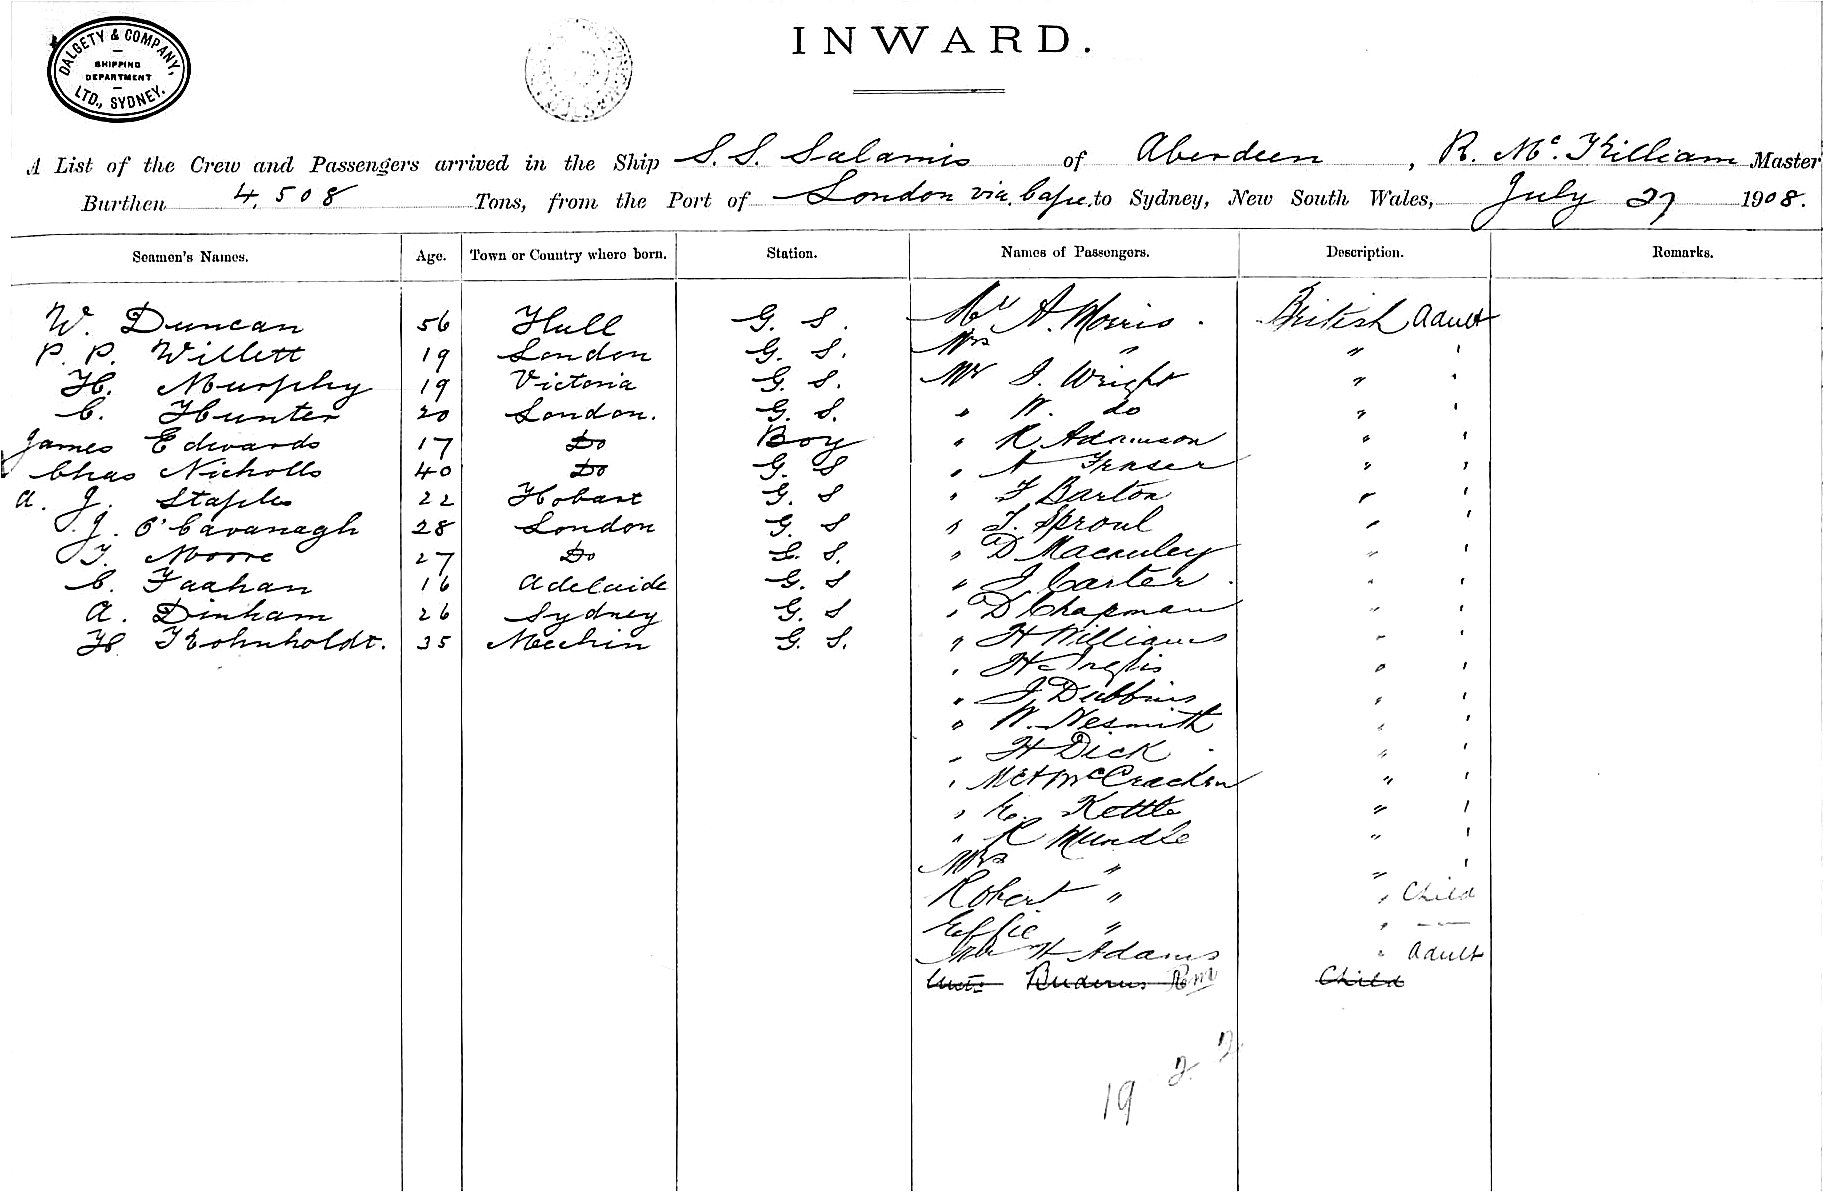 DALGETY & COMPANY,
SHIPPING
DEPARTMENT
LTD., SYDNEY.
INWARD.
A List of the Crew and Passengers arrived in the Ship S.S. Salamis of Aberdeen, R. Mc. Killiam Master
Burthen 4,508 Tons, from the Port of London via Cape to Sydney, New South Wales, July 27 1908.
Seamen's Names. Age. Town or Country where born. Station. Names of Passengers. Description. Remarks.
W. Duncan 56 Hull G. S. Mr A. Morris British Adult
P. P. Willett 19 London G. S. Mrs " " '
H. Murphy 19 Victoria G. S. Mr J. Wright " '
C. Hunter 20 London. G. S. " W. do " '
James Edwards 17 Do Boy " R Adamson " '
Chas Nicholls 40 Do G. S " A Fraser " '
A. J. Staples 22 Hobart G. S " F Barton " '
J. O'Cavanagh 28 London G. S " T. Sproul " '
T. Moore 27 Do G. S. " D Macauley " '
C. Faahan 16 Adelaide G. S " J. Carter " '
A. Dinham 26 Sydney G. S " D Chapman " '
H Kohnholdt. 35 Mechin G. S. " H Williams " '
" H Inglis " '
" J Dubbins " '
" W. Nesmith " '
" H Dick " '
" McCracken " '
" E. Kettle " '
" R Mundle " '
Mrs " " '
Robert " " Child
Effie " " —
Mr H Adams " Adult
Buderus RM Child
19 2 2